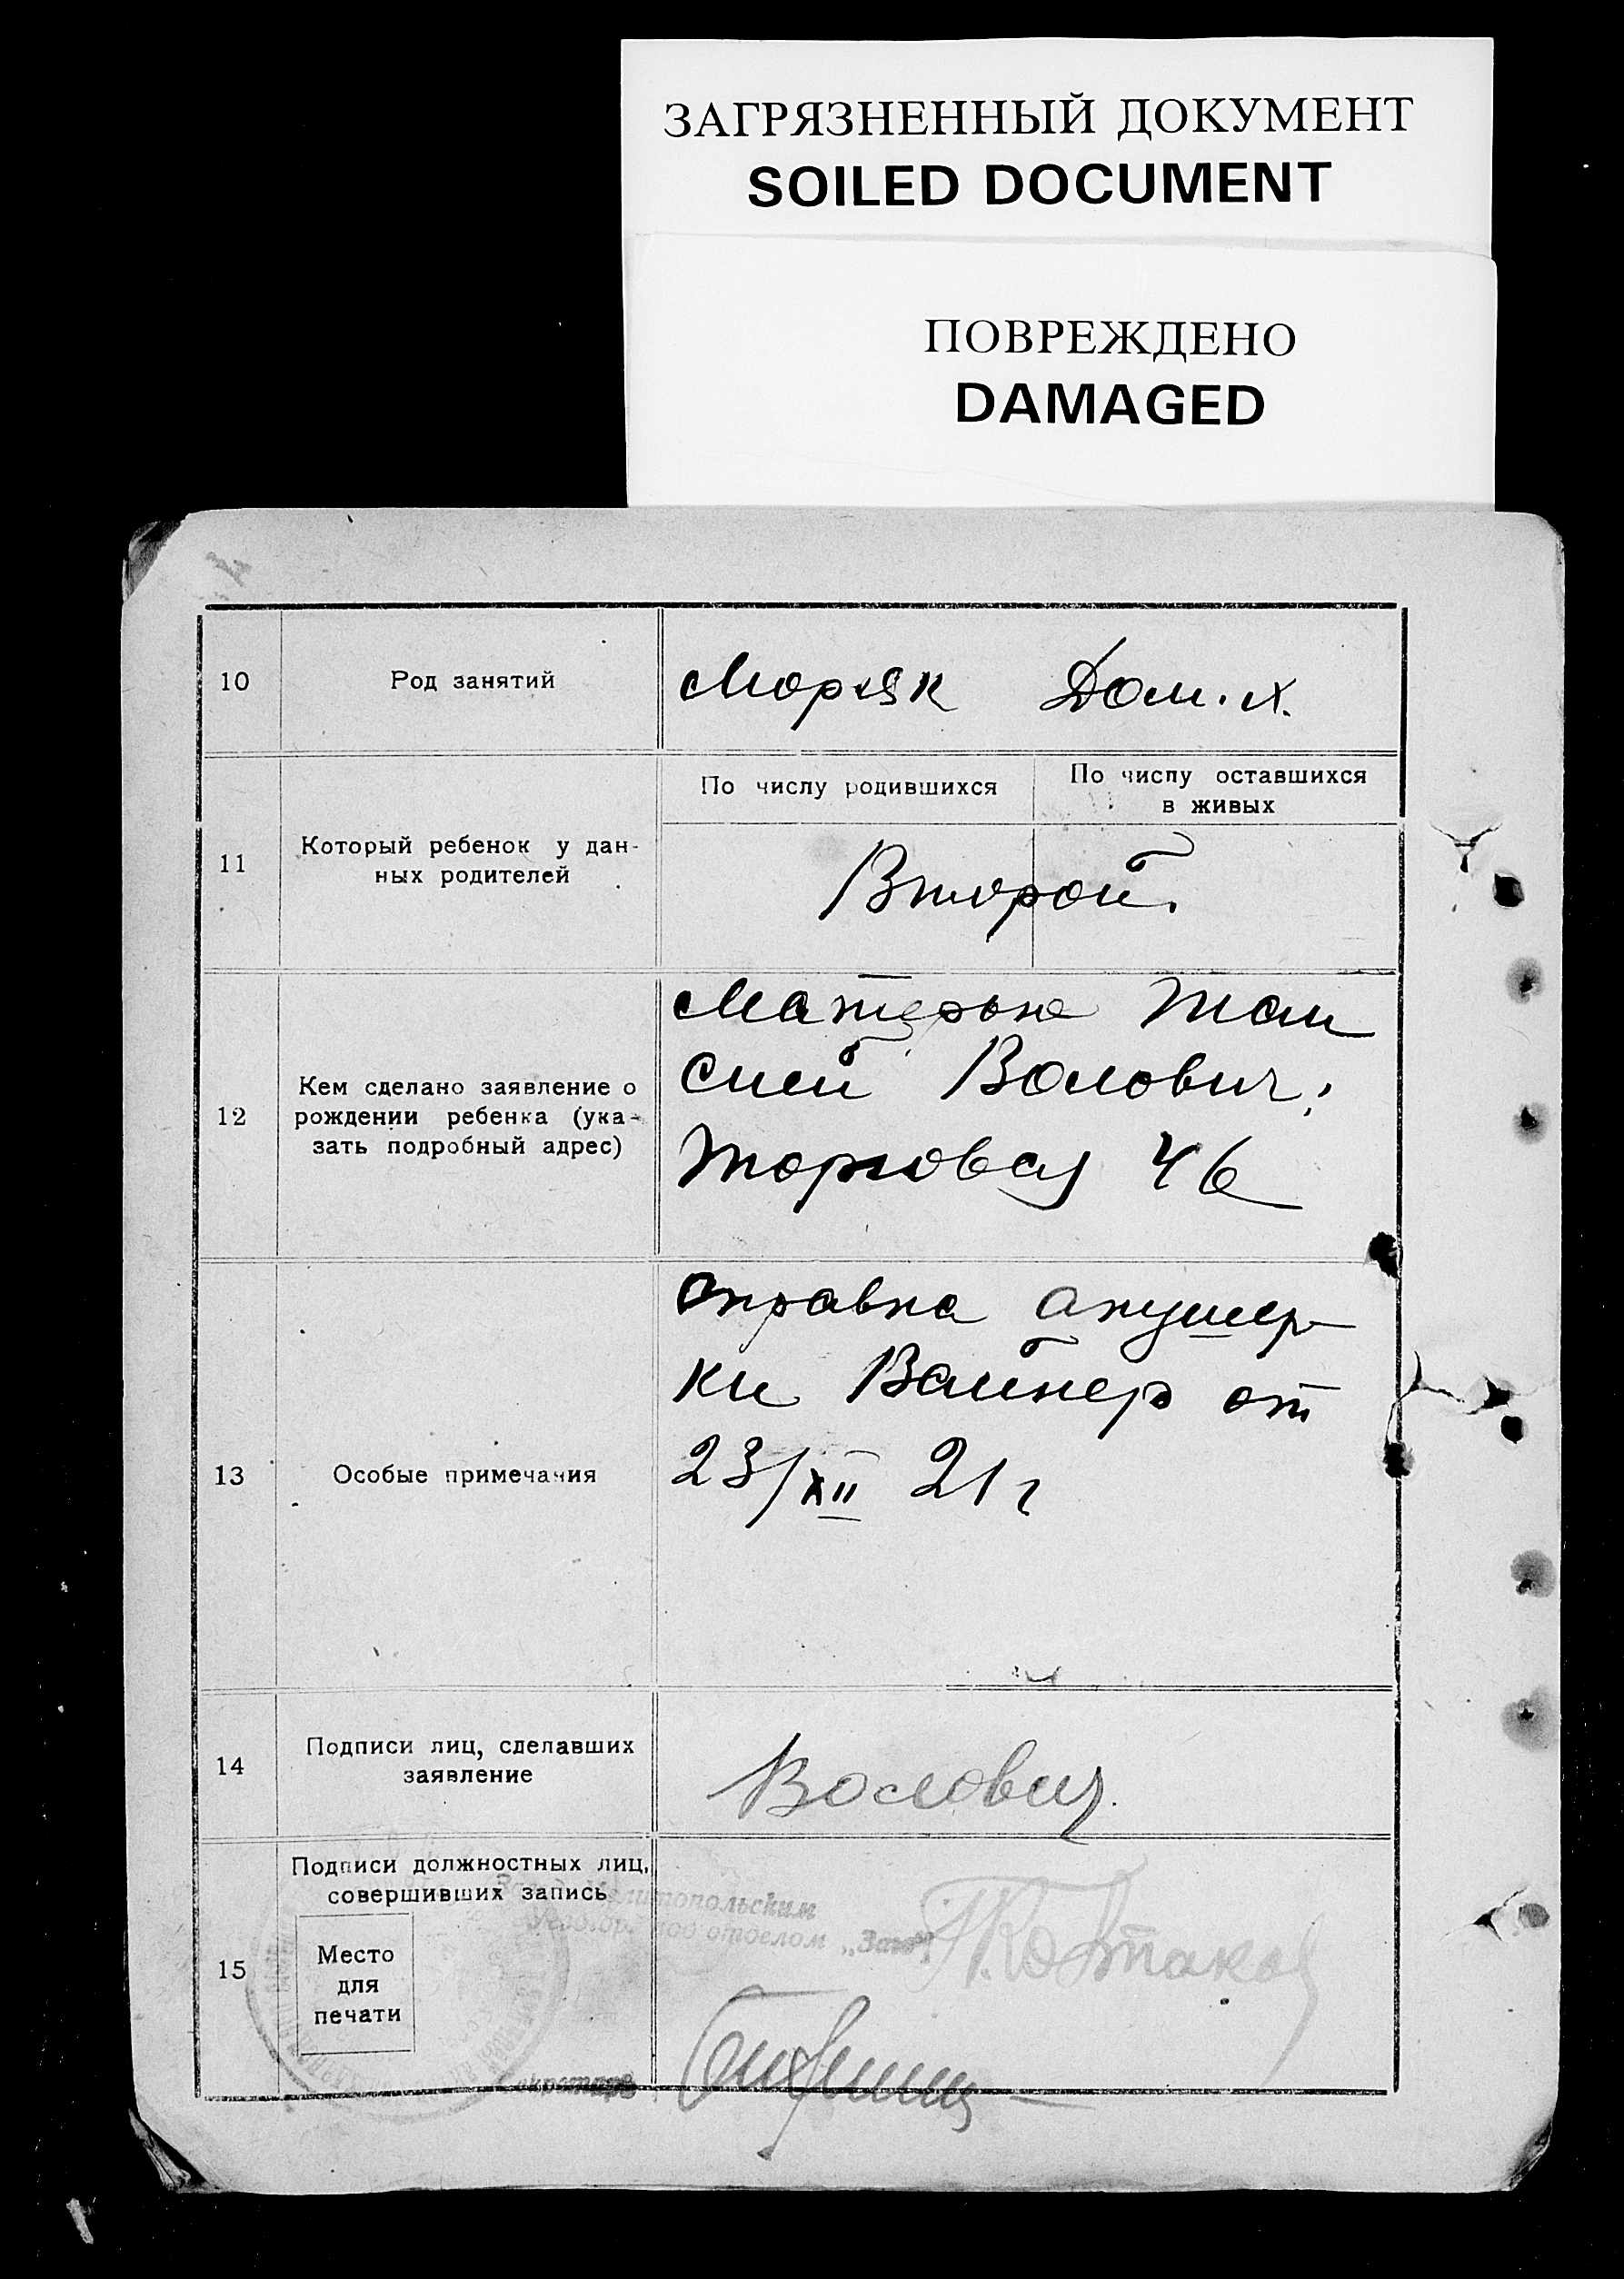 ЗАГРЯЗНЕННЫЙ ДОКУМЕНТ
SOILED DOCUMENT
ПОВРЕЖДЕНО
DAMAGED
10 Род занятий Моряк Дом. х.
По числу родившихся По числу оставшихся
в живых
11 Который ребенок у дан-
ных родителей
Второй.
12 Кем сделано заявление о
рождении ребенка (ука-
зать подробный адрес)
Матерью
Волович
Торговая 46
13 Особые примечания
Справка акушер
ки Вайнер от
23/XII 21 г
14 Подписи лиц, сделавших
заявление
Волович
15 Подписи должностных лиц,
совершивших запись
Место
для
печати
Мелитопольским
под отделом „Загс"